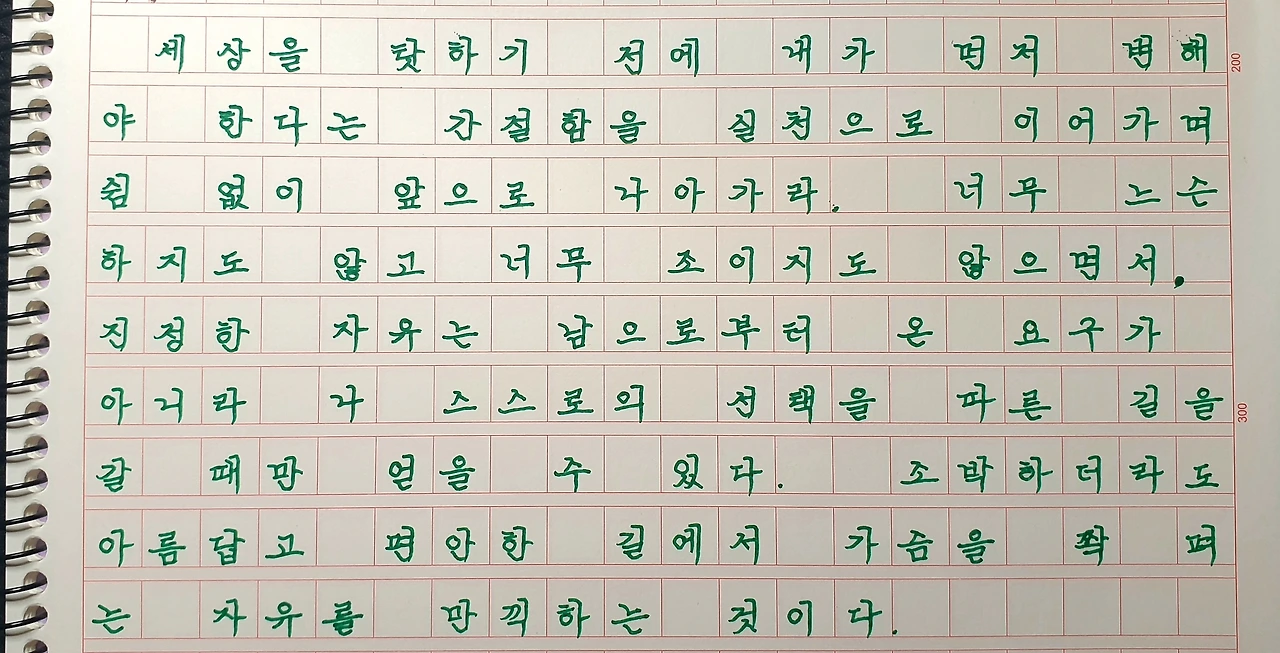 세상을 탓하기 전에 내가 먼저 변해
야 한다는 간절함을 실천으로 이어가며
쉼 없이 앞으로 나아가라. 너무 느슨
하지도 않고 너무 조이지도 않으면서.
진정한 자유는 남으로부터 온 요구가
아니라 나 스스로의 선택을 따른 길을
갈 때만 얻을 수 있다. 소박하더라도
아름답고 편안한 길에서 가슴을 쫙 펴
는 자유를 만끽하는 것이다.
200
300